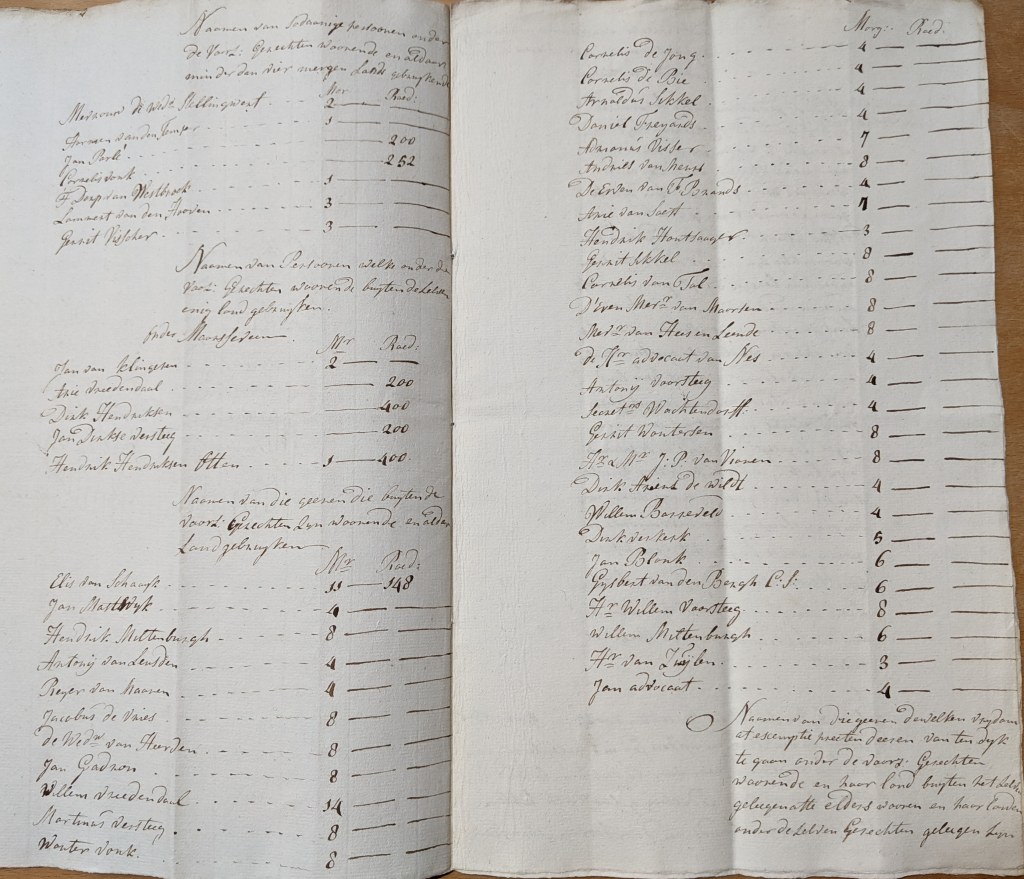 Naamen van sodaanige persoonen onder
de voorz: Gerechten woonende en aldaar
minder dan vier mergen Lands gebruykende
Mor Roed:
Mevrouw de Wede Stellingwerf 2 —
van den 1 —
Jan Parlé — 200
Cornelis vonk — 252
F Dorp van Westbroek 1 —
Lammert van den Hooven 3 —
Gerrit Visscher 3 —
Naamen van Persoonen welke onder de
voorz: Gerechten woonende buyten deselve
eenig land gebruyken.
onder Maarsseveen
Mr Roed:
Jan van Clingeren 2 —
Arie Vreedendaal — 200
Dirk Hendriksen — 400
Jan Dirkse versteeg — 200
Hendrik Hendriksen Otten 1 — 400
Naamen van die geenen die buyten de
voorz: Gerechten zyn woonende en aldaar
Land gebruyken
Mr Roed:
Elis van Schaayk 11 — 148
Jan Mastwyk 4 —
Hendrik Mittenburgh 8 —
Antonij van Leusden 4 —
Rieger van Maaren 4 —
Jacobus de Vries 8 —
de Wedw van Heurden 8 —
Jan Gadron 8 —
Willem Vreedendaal 14 —
Martinus versteeg 8 —
Wouter vonk. 8 —
Morg: Roed.
Cornelis de Jong 4 —
Cornelis de Bie 4 —
Arnoldus Sikkel 4 —
Daniel Freyards 4 —
Adrianus Visser 7 —
Andries van 8 —
De Erven van Brands 4 —
Arie van Soest 7 —
Hendrik Houtsaager 3 —
Gerrit Sikkel 8 —
Cornelis van Tol 8 —
D'Erven Mevr van Maarsen 8 —
Mevr van Heusen Leende 8 —
de Hr advocaat van Nes 4 —
Antonij Voorsteeg 4 —
Secrets Wachtendorff 4 —
Gerrit Woutersen 8 —
Hr & Mr J: P. van Vianen 8 —
Dirk Ariens de wildt 4 —
Willem Barneveld 4 —
Dirk verkerk 5 —
Jan Blonk 6 —
Gysbert van den Bongh C: S: 6 —
Hr Willem Voorsteeg 8 —
Willem Mittenburgh 6 —
Hr van Zuijlen 3 —
Jan advocaat 4 —
Naamen van die geenen dewelken vrydom
of exemptie preetendeeren van ten dyk
te gaan onder de voorz: Gerechten
woonende en haar land buyten het selve
geleegen ofte elders woonen en haar landen
onder deselven Gerechten geleegen zyn